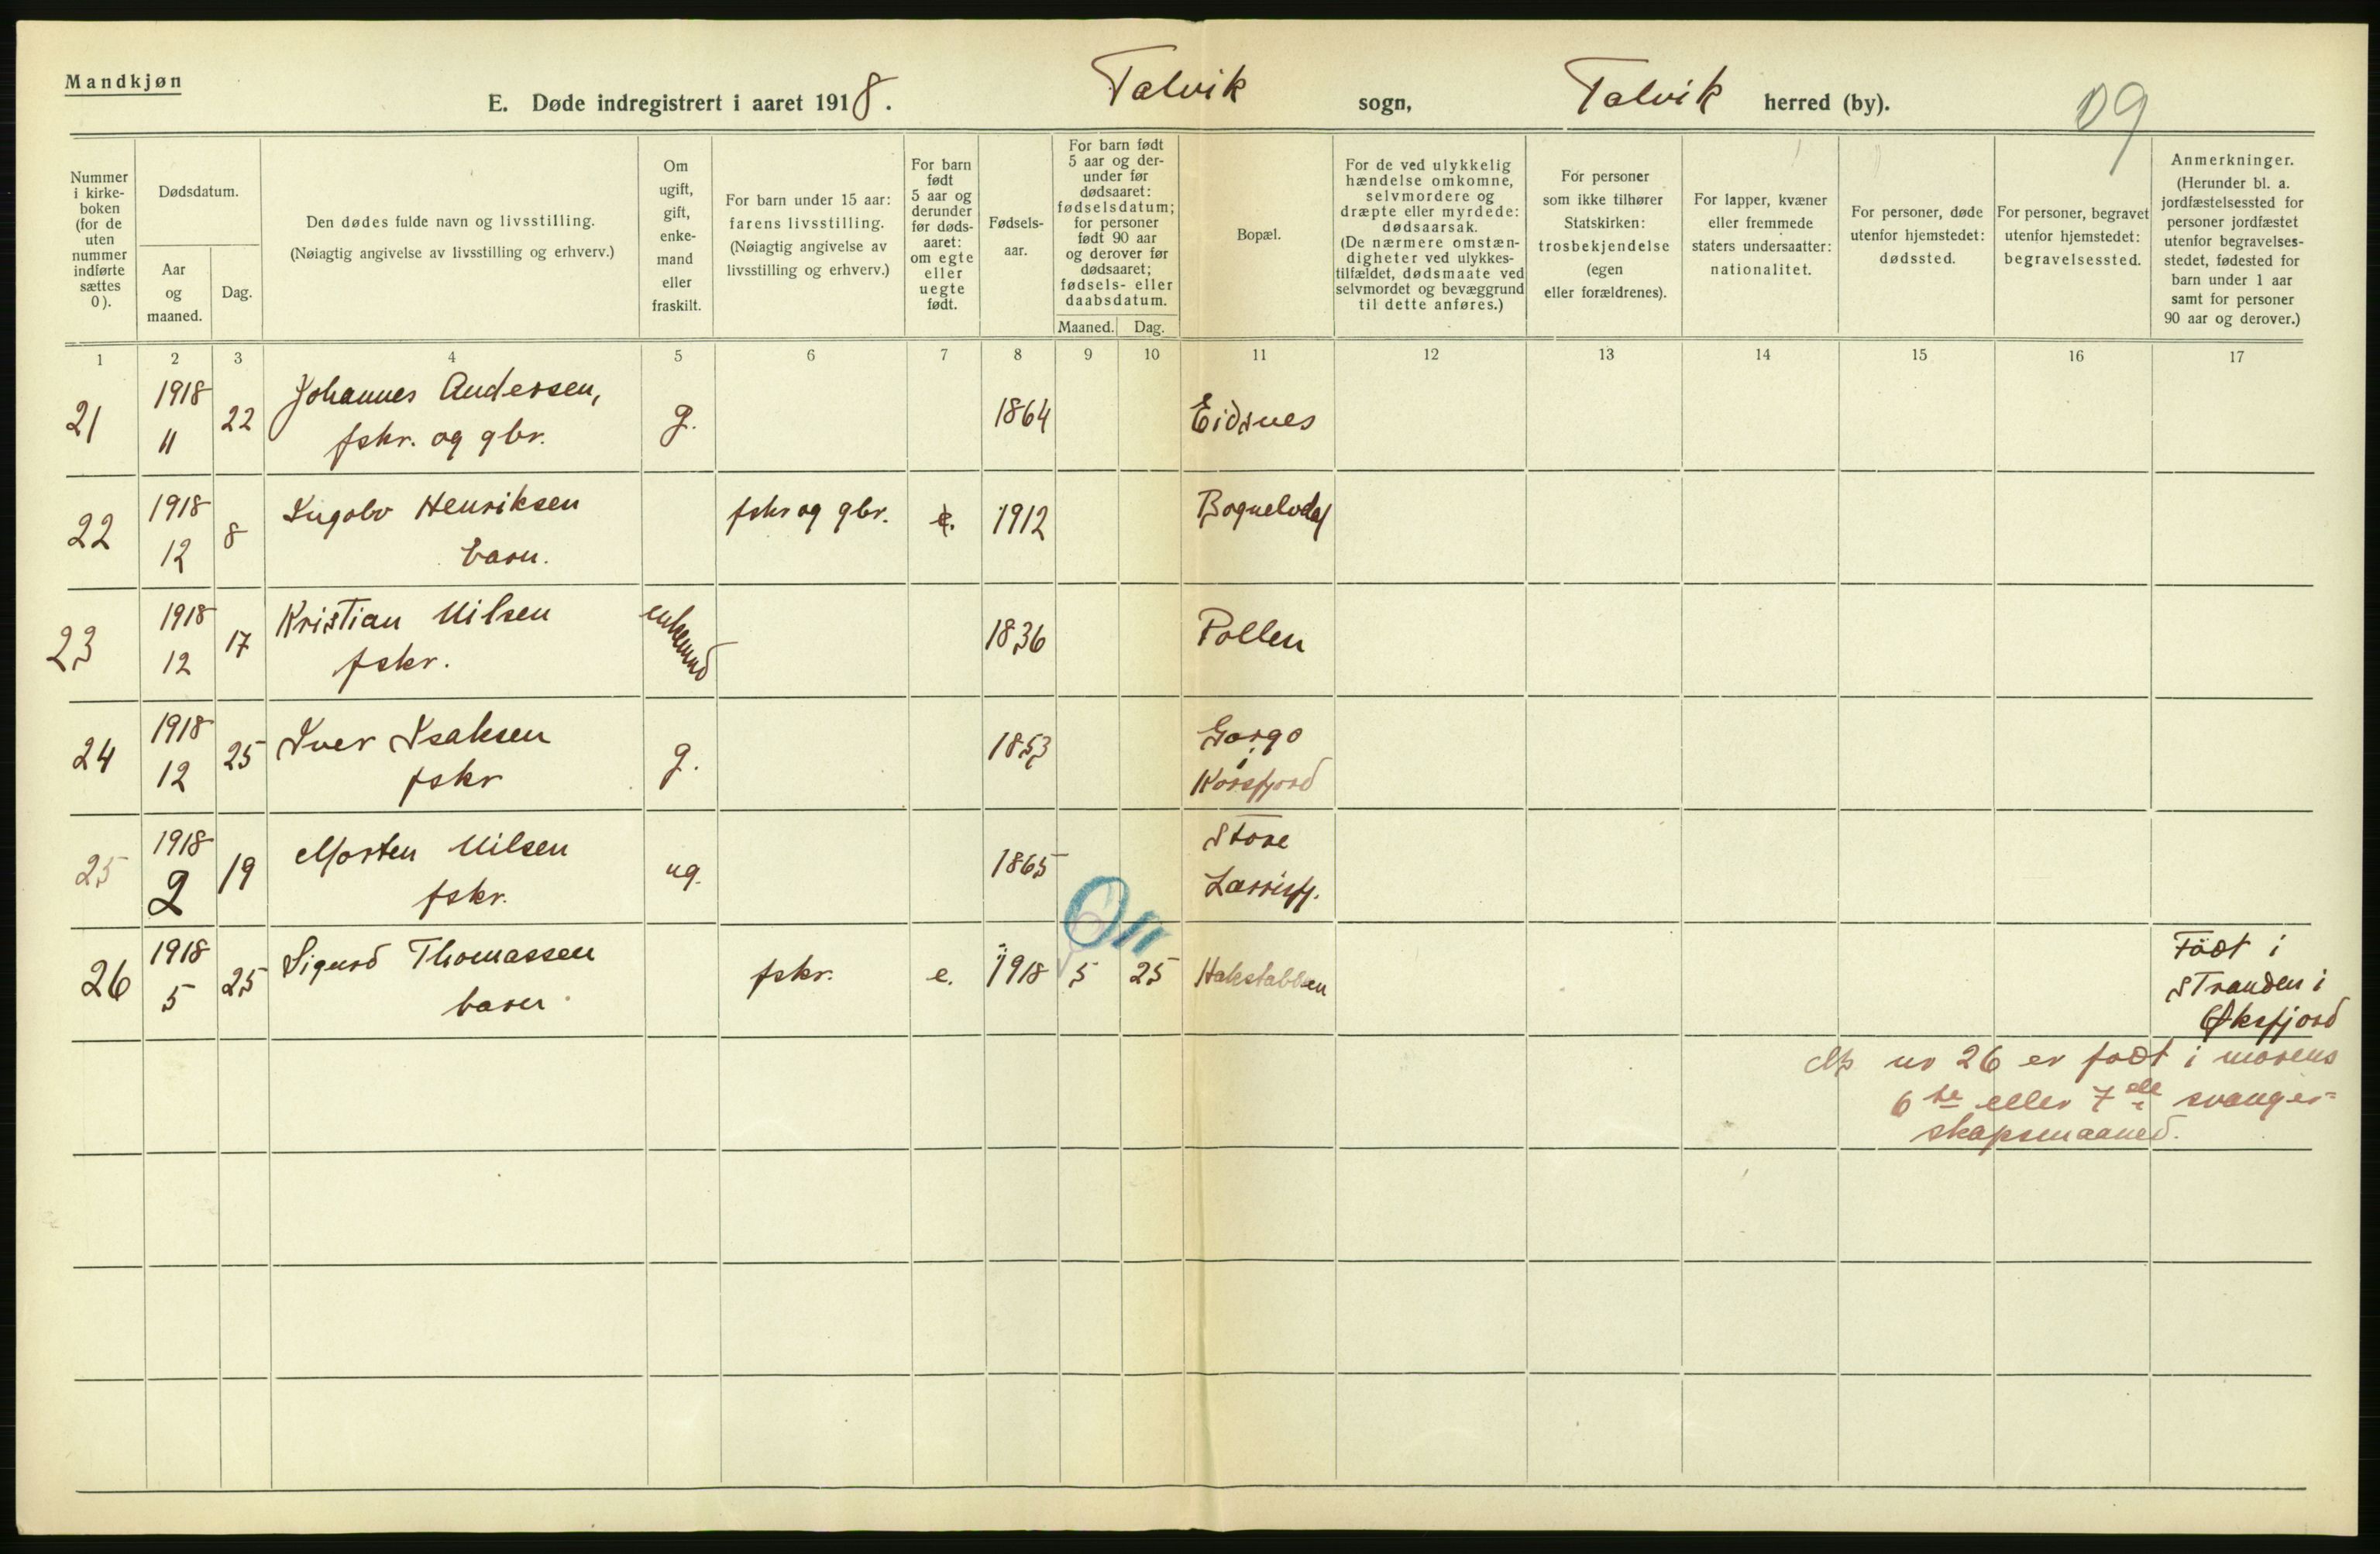 Mandkjøn
E. Døde indregistrert i aaret 1918. Talvik sogn, Talvik herred (by). 09
Nummer i kirke- boken (for de uten nummer indførte sættes 0).
Dødsdatum.
Aar og maaned.
Dag.
Den dødes fulde navn og livsstilling.
(Nøiagtig angivelse av livsstilling og erhverv.)
Om ugift, gift, enke- mand eller fraskilt.
For barn under 15 aar: farens livsstilling. (Nøiagtig angivelse av livsstilling og erhverv.)
For barn født 5 aar og derunder før døds- aaret: om egte eller uegte født.
Fødsels- aar.
For barn født 5 aar og der- under før dødsaaret: fødselsdatum; for personer født 90 aar og derover før dødsaaret; fødsels- eller daabsdatum.
Maaned. Dag.
Bopæl.
For de ved ulykkelig hændelse omkomne, selvmordere og dræpte eller myrdede: dødsaarsak. (De nærmere omstæn- digheter ved ulykkes- tilfældet, dødsmaate ved selvmordet og bevæggrund til dette anføres.)
For personer som ikke tilhører Statskirken: trosbekjendelse (egen eller forældrenes).
For lapper, kvæner eller fremmede staters undersaatter: nationalitet.
For personer, døde utenfor hjemstedet: dødssted.
For personer, begravet utenfor hjemstedet: begravelsessted.
Anmerkninger. (Herunder bl. a. jordfæstelsessted for personer jordfæstet utenfor begravelses- stedet, fødested for barn under 1 aar samt for personer 90 aar og derover.)
1 2 3 4 5 6 7 8 9 10 11 12 13 14 15 16 17
21 1918 11 22 Johannes Andersen, fskr. og gbr. g. 1864 Eidsnes
22 1918 12 8 Ingolv Henriksen barn. fskr og gbr. e. 1912 Bognelvdal
23 1918 12 17 Kristian Nilsen fskr. enkemand 1836 Pollen
24 1918 12 25 Iver Isaksen fskr g. 1853 Gargo i Korsfjord
25 1918 2 19 Morten Nilsen fskr. ug. 1865 Store Lerrisfj.
26 1918 5 25 Sigurd Thomassen barn fskr. e. 1918 5 25 Hakstabben Født i Stranden i Øksfjord
nr 26 er født i morens
6te eller 7de svanger-
skapsmaaned.